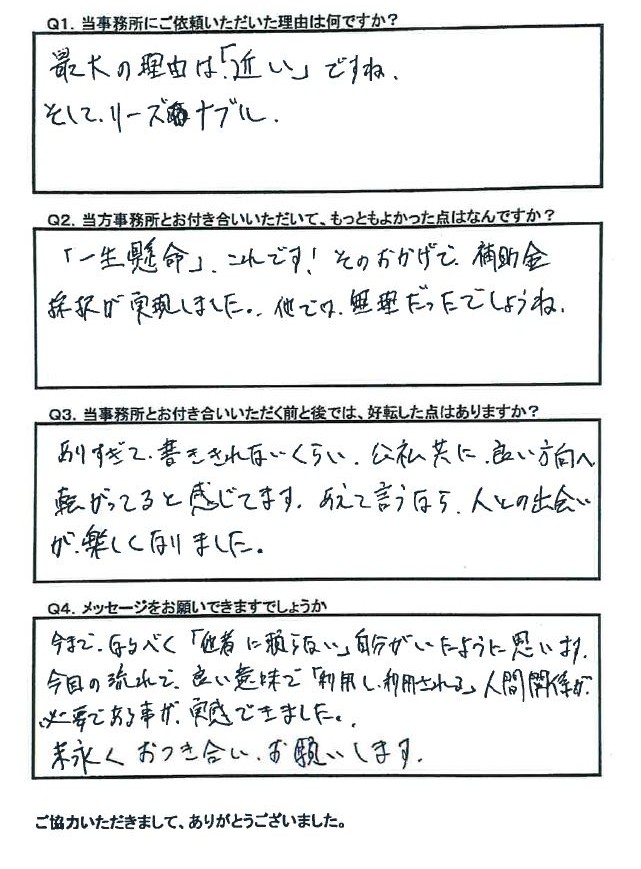 Q1. 当事務所にご依頼いただいた理由は何ですか？
最大の理由は「近い」ですね.
そして、リーズナブル.
Q2. 当方事務所とお付き合いいただいて、もっともよかった点はなんですか？
「一生懸命」、これです! そのおかげで、補助金
採択が実現しました。、他では、無理だったでしょうね.
Q3. 当事務所とお付き合いいただく前と後では、好転した点はありますか？
ありすぎて、書ききれないくらい、公私共に、良い方向へ
転がってると感じてます. あえて言うなら、人との出会い
が、楽しくなりました。
Q4. メッセージをお願いできますでしょうか
今まで、なるべく「他者に頼らない」自分がいたように思います.
今回の流れで、良い意味で「利用し、利用される」人間関係が、
必要である事が、実感できました。.
末永くおつき合い、お願いします.
ご協力いただきまして、ありがとうございました。